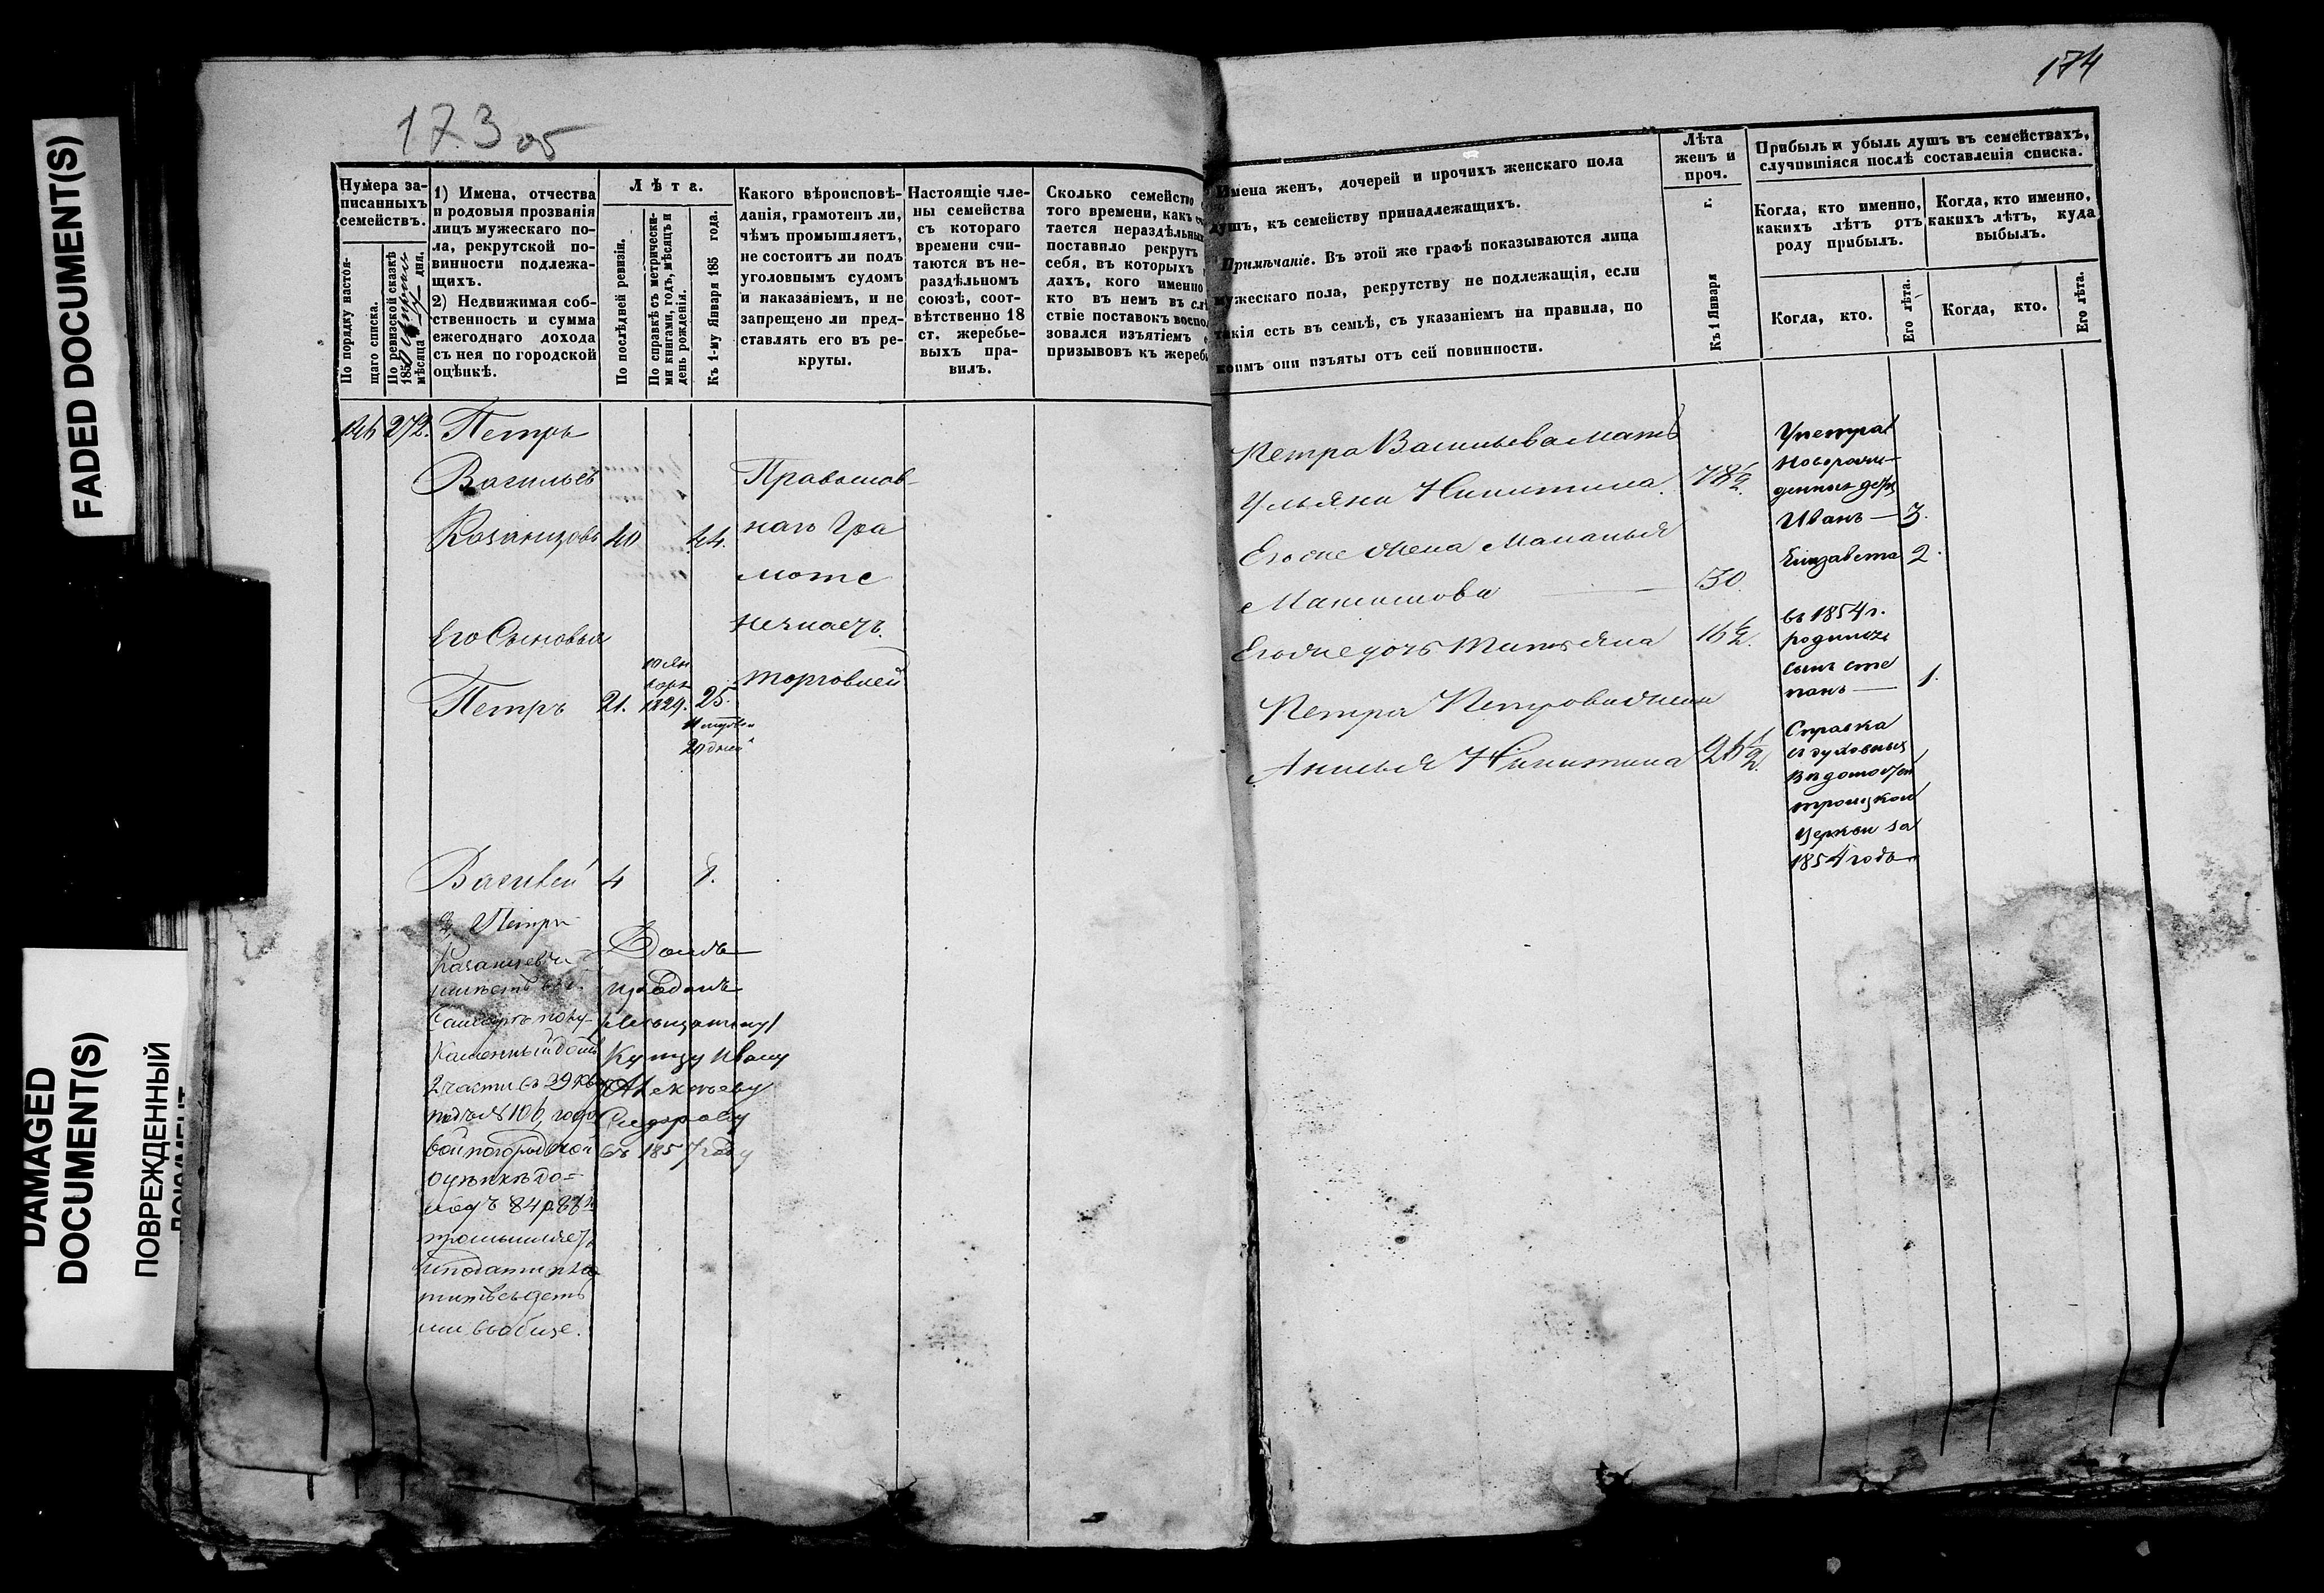 FADED DOCUMENT(S)
DAMAGED
DOCUMENT(S)
ПОВРЕЖДЕННЫЙ
ДОКУМЕНТ
173 об
Нумера за-
писанныхъ
семействъ.
По порядку настоя-
щаго списка.
По ревизской сказкѣ
1850
мѣсяца дня.
1) Имена, отчества
и родовыя прозванія
лицъ мужескаго по-
ла, рекрутской по-
винности подлежа-
щихъ.
2) Недвижимая соб-
ственность и сумма
ежегоднаго дохода
съ нея по городской
оцѣнкѣ.
Лѣта.
По послѣдней ревизіи.
По справкѣ съ метрически-
ми книгами, годъ, мѣсяцъ и
день рожденія.
Къ 1-му Января 185 года.
Какого вѣроисповѣ-
данія, грамотенъ ли,
чѣмъ промышляетъ,
не состоитъ ли подъ
уголовнымъ судомъ
и наказаніемъ, и не
запрещено ли пред-
ставлять его въ ре-
круты.
Настоящіе чле-
ны семейства
съ котораго
времени счи-
таются въ не-
раздѣльномъ
союзѣ, соот-
вѣтственно 18
ст. жеребье-
выхъ пра-
вилъ.
Сколько семейство
того времени, какъ
тается нераздѣльнымъ
поставило рекрутъ
себя, въ которыхъ
дахъ, кого именно
кто въ немъ въ слѣд
ствіе поставокъ воспол
зовался изъятіемъ
призывовъ къ жереб
146 272. Петръ
Васильев
Казанцовъ 40 44.
Православ-
наго Гра
моте
незнаетъ.
торговлей
Его Сыновья
Петръ 21. 10 Ян
варя
1829. 25.
11 мѣсяцевъ
20 дней
Василей 4 8.
у Петра
Казанцева
имѣетъ
каменный домъ
2 части въ 39 кв
подъ № 106, годо
вой по городской
оцѣнкѣ до=
ходъ 84 р. 87 к
промышляетъ
и подати пла
титъ съ деть
ми вообще.
Домъ
проданъ
Купцу Ивану
Алексѣеву
Сидорову
въ 1857 году
174
Имена женъ, дочерей и прочихъ женскаго пола
душъ, къ семейству принадлежащихъ.
Примѣчаніе. Въ этой же графѣ показываются лица
мужескаго пола, рекрутству не подлежащія, если
такія есть въ семьѣ, съ указаніемъ на правила, по
коимъ они изъяты отъ сей повинности.
Лѣта
женъ и
проч.
Къ 1 Января г.
Прибыль и убыль душъ въ семействахъ,
случившіяся послѣ составленія списка.
Когда, кто именно,
какихъ лѣтъ отъ
роду прибылъ.
Когда, кто именно,
какихъ лѣтъ, куда
выбылъ.
Когда, кто.
Его лѣта.
Когда, кто.
Его лѣта.
Петра Васильева мать
Ульяна Никитина. 78½.
Его же жена Маланья
Максимова 50.
Его же дочь Татьяна 16½.
Петра Петрова жена
Акилья Никитина 26½.
У Петра
новорож-
денныя дети
Иванъ — 3.
Елизавета 2.
въ 1854 г.
родился
сынъ Сте
панъ — 1.
Справка
въ духовныхъ
ведомостей
троицкой
церкви за
1854 годъ